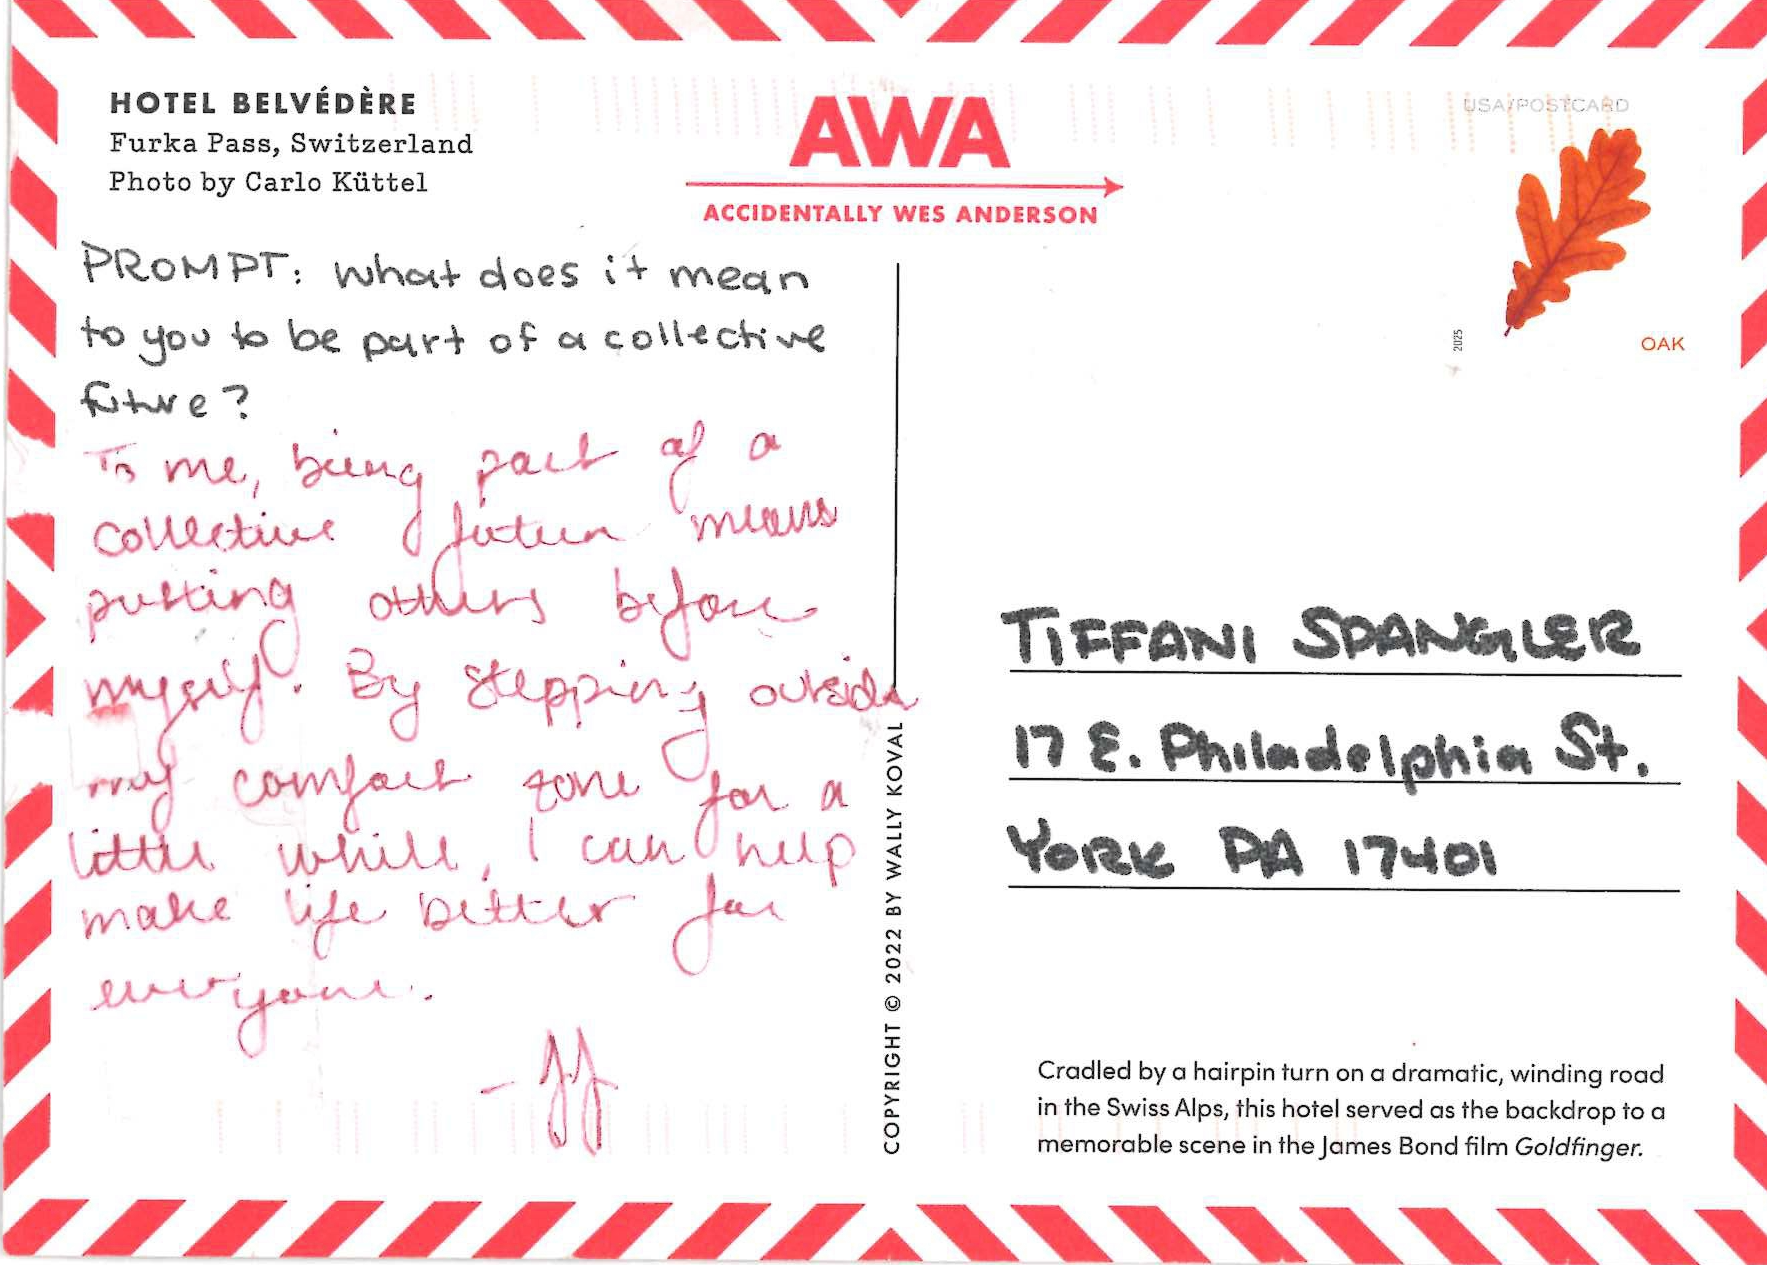 HOTEL BELVÉDÈRE
Furka Pass, Switzerland
Photo by Carlo Küttel
AWA
ACCIDENTALLY WES ANDERSON
USA/POSTCARD
2025
OAK
PROMPT: What does it mean
to you to be part of a collective
future?
To me, being part of a
collective future means
putting others before
myself. By stepping outside
my comfort zone for a
little while, I can help
make life better for
everyone.
- JJ
COPYRIGHT © 2022 BY WALLY KOVAL
TIFFANI SPANGLER
17 E. Philadelphia St.
YORK PA 17401
Cradled by a hairpin turn on a dramatic, winding road
in the Swiss Alps, this hotel served as the backdrop to a
memorable scene in the James Bond film Goldfinger.